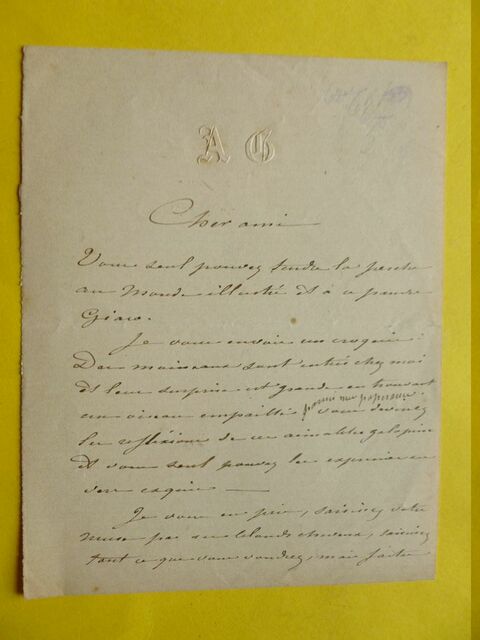 A G
Cher ami
Vous seul pouvez tendre la perche
au Monde illustré et à ce pauvre
Giaco.
Je vous envoie un croquis:
Des moineaux sont entrés chez moi
et leur surprise est grande en trouvant
un oiseau empaillé vous devinez
les réflexions de ces aimables galopins
et vous seul pouvez les exprimer en
vers exquis —
Je vous en prie, saisissez votre
muse par ses blonds cheveux, saisissez
tout ce que vous voudrez, mais faites